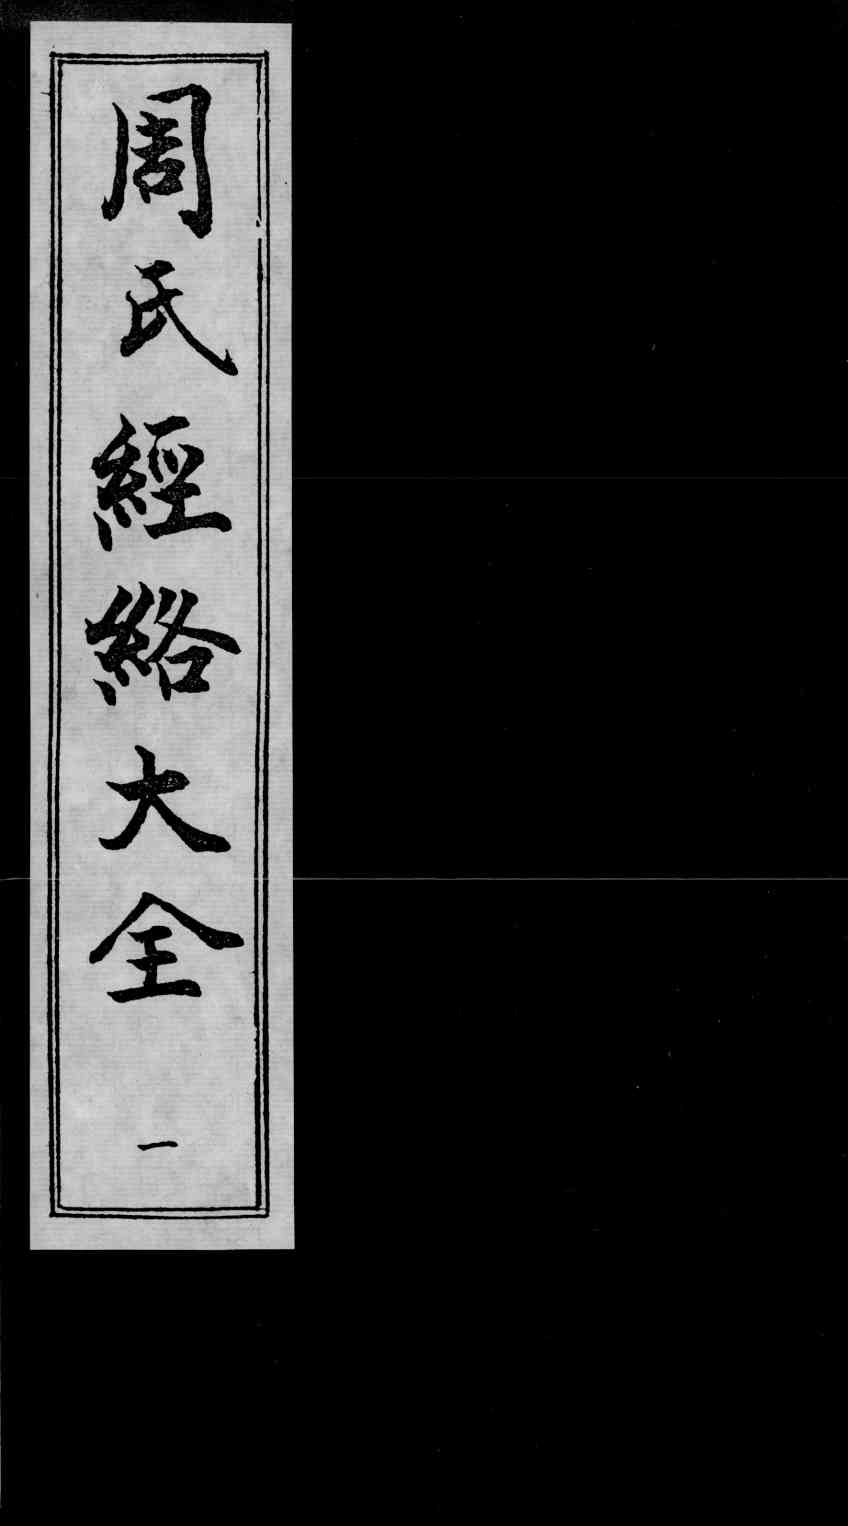 周氏經絡大全 一